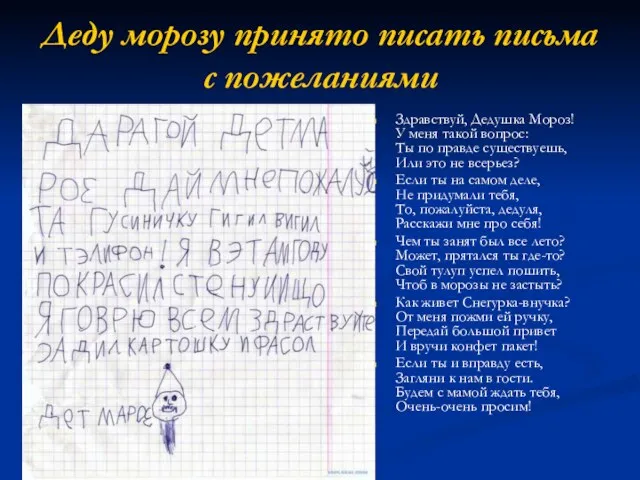 Деду морозу принято писать письма
с пожеланиями
ДАРАГОЙ ДЕТМА
РОЕ ДАЙ МНЕ ПОЖАЛУЙС
ТА ГУСИНИЧКУ ГИГИЛ ВИГИЛ
И ТЭЛИФОН! Я В ЭТАМ ГОДУ
ПОКРАСИЛ СТЕНУ И ИЩО
Я ГОВРЮ ВСЕМ ЗДРАСТВУЙТЕ
ЭАДИЛ КАРТОШКУ И ФАСОЛ
ДЕТ МАРОЕ
Здравствуй, Дедушка Мороз!
У меня такой вопрос:
Ты по правде существуешь,
Или это не всерьез?
Если ты на самом деле,
Не придумали тебя,
То, пожалуйста, дедуля,
Расскажи мне про себя!
Чем ты занят был все лето?
Может, прятался ты где-то?
Свой тулуп успел пошить,
Чтоб в морозы не застыть?
Как живет Снегурка-внучка?
От меня пожми ей ручку,
Передай большой привет
И вручи конфет пакет!
Если ты и вправду есть,
Загляни к нам в гости.
Будем с мамой ждать тебя,
Очень-очень просим!